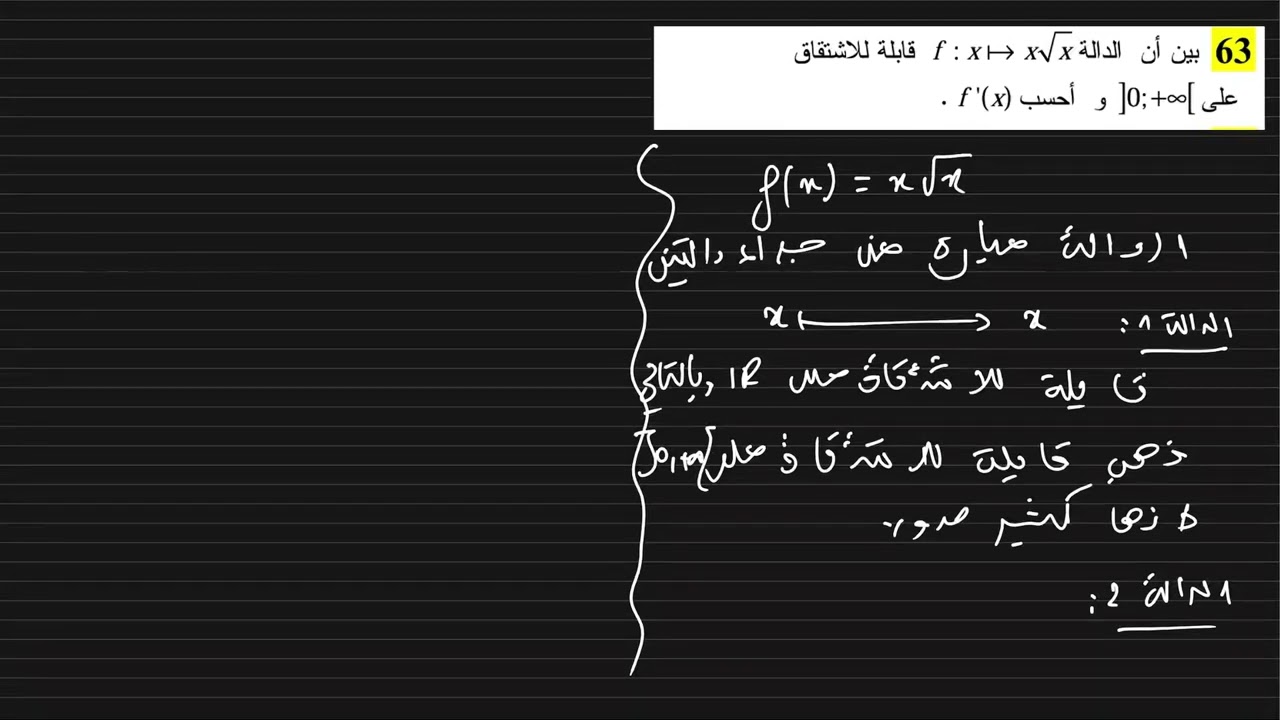 63 بين أن الدالة f : x ↦ x√x قابلة للاشتقاق
على ]0;+∞[ و أحسب f '(x) .
f(x) = x√x
الدالة عبارة عن جداء دالتين
الدالة 1: x ⟼ x
قابلة للاشتقاق على IR وبالتالي
فهي قابلة للاشتقاق على ]0,+∞[
لأنها كثير حدود
الدالة 2: